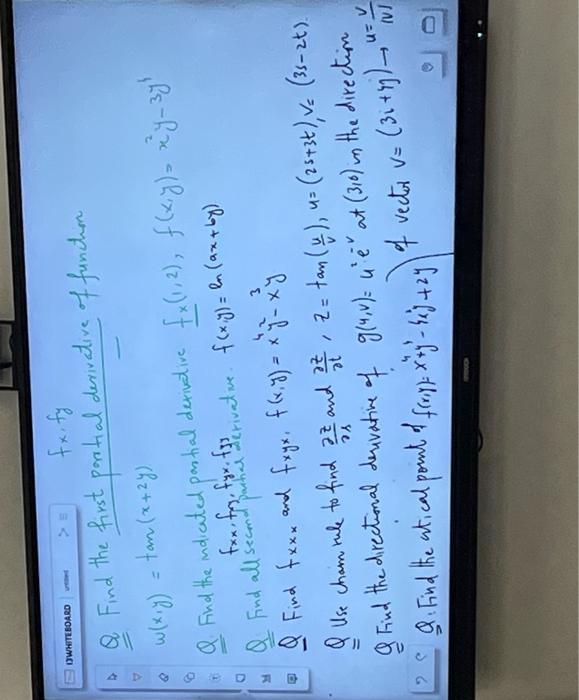 i3WHITEBOARD untitled
fx, fy
Q. Find the first partial derivative of function
w(x,y) = tan(x+2y)
Q. Find the indicated partial derivative fx(1,2), f(x,y) = x²y - 3y⁴
fxx, fxy, fyx, fyy
Q. Find all second partial derivative. f(x,y) = ln(ax+by)
Q. Find fxxx and fxyx, f(x,y) = x⁴y² - x³y
Q. Use chain rule to find ∂z/∂s and ∂z/∂t, z = tan(u/v), u = (2s+3t), v = (3s-2t).
Q. Find the directional derivative of g(u,v) = u²e⁻ᵛ at (3,0) in the direction
of vector v = (3i+4j) → u = v/|v|
Q. Find the critical point of f(x,y) = x⁴+y⁴-4xy+2y